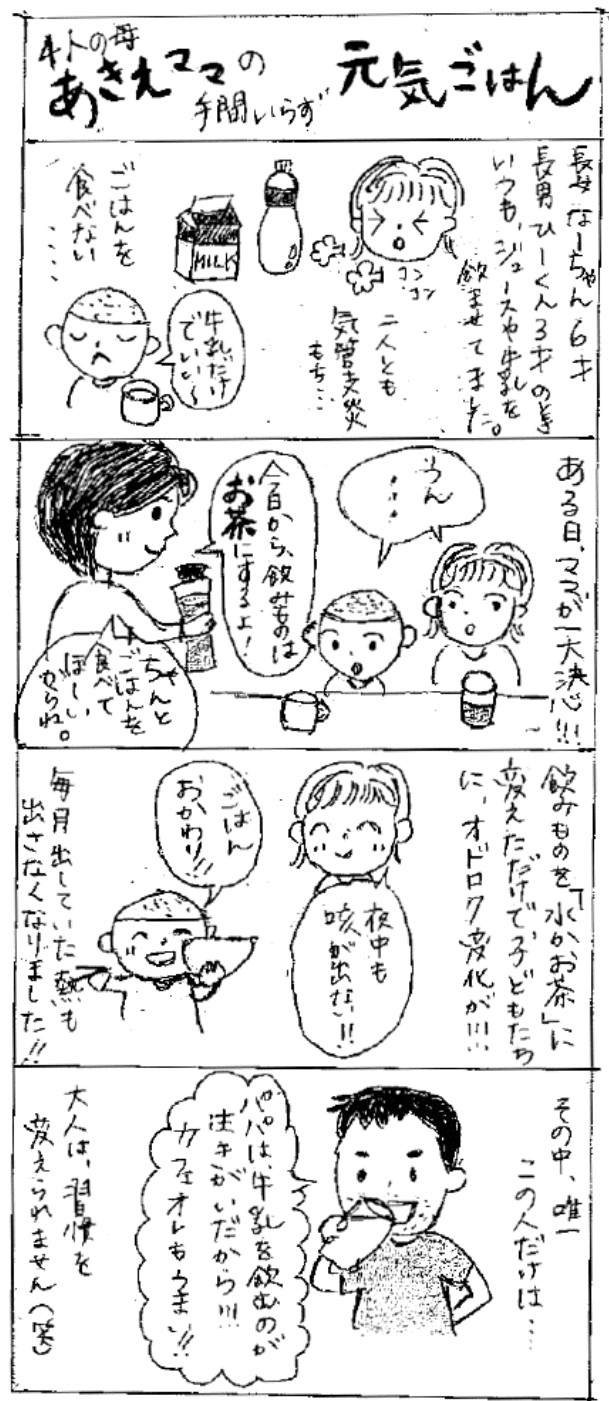 4人の母
あきえママの
手間いらず
元気ごはん
長女なーちゃん6才
長男ひーくん3才のとき
いつも、ジュースや牛乳を
飲ませてました。
コンコン
コン
二人とも
気管支炎
もち…
MILK
ごはんを
食べない
‥‥
牛乳だけ
でいい〜
ある日、ママが一大決心!!!
うん
・・・
今日から、飲みものは
お茶にするよ!
ちゃんと
ごはんを
食べて
ほしい
からね。
飲みものを「水かお茶」に
変えただけで、子どもたち
に、オドロク変化が!!!
夜中も
咳が出ない!!
ごはん
おかわり!!
毎月出していた熱も
出さなくなりました!!
その中、唯一
この人だけは…
パパは、牛乳を飲むのが
生きがいだから!!!
カフェオレもうまい!!
大人は、習慣を
変えられません(笑)